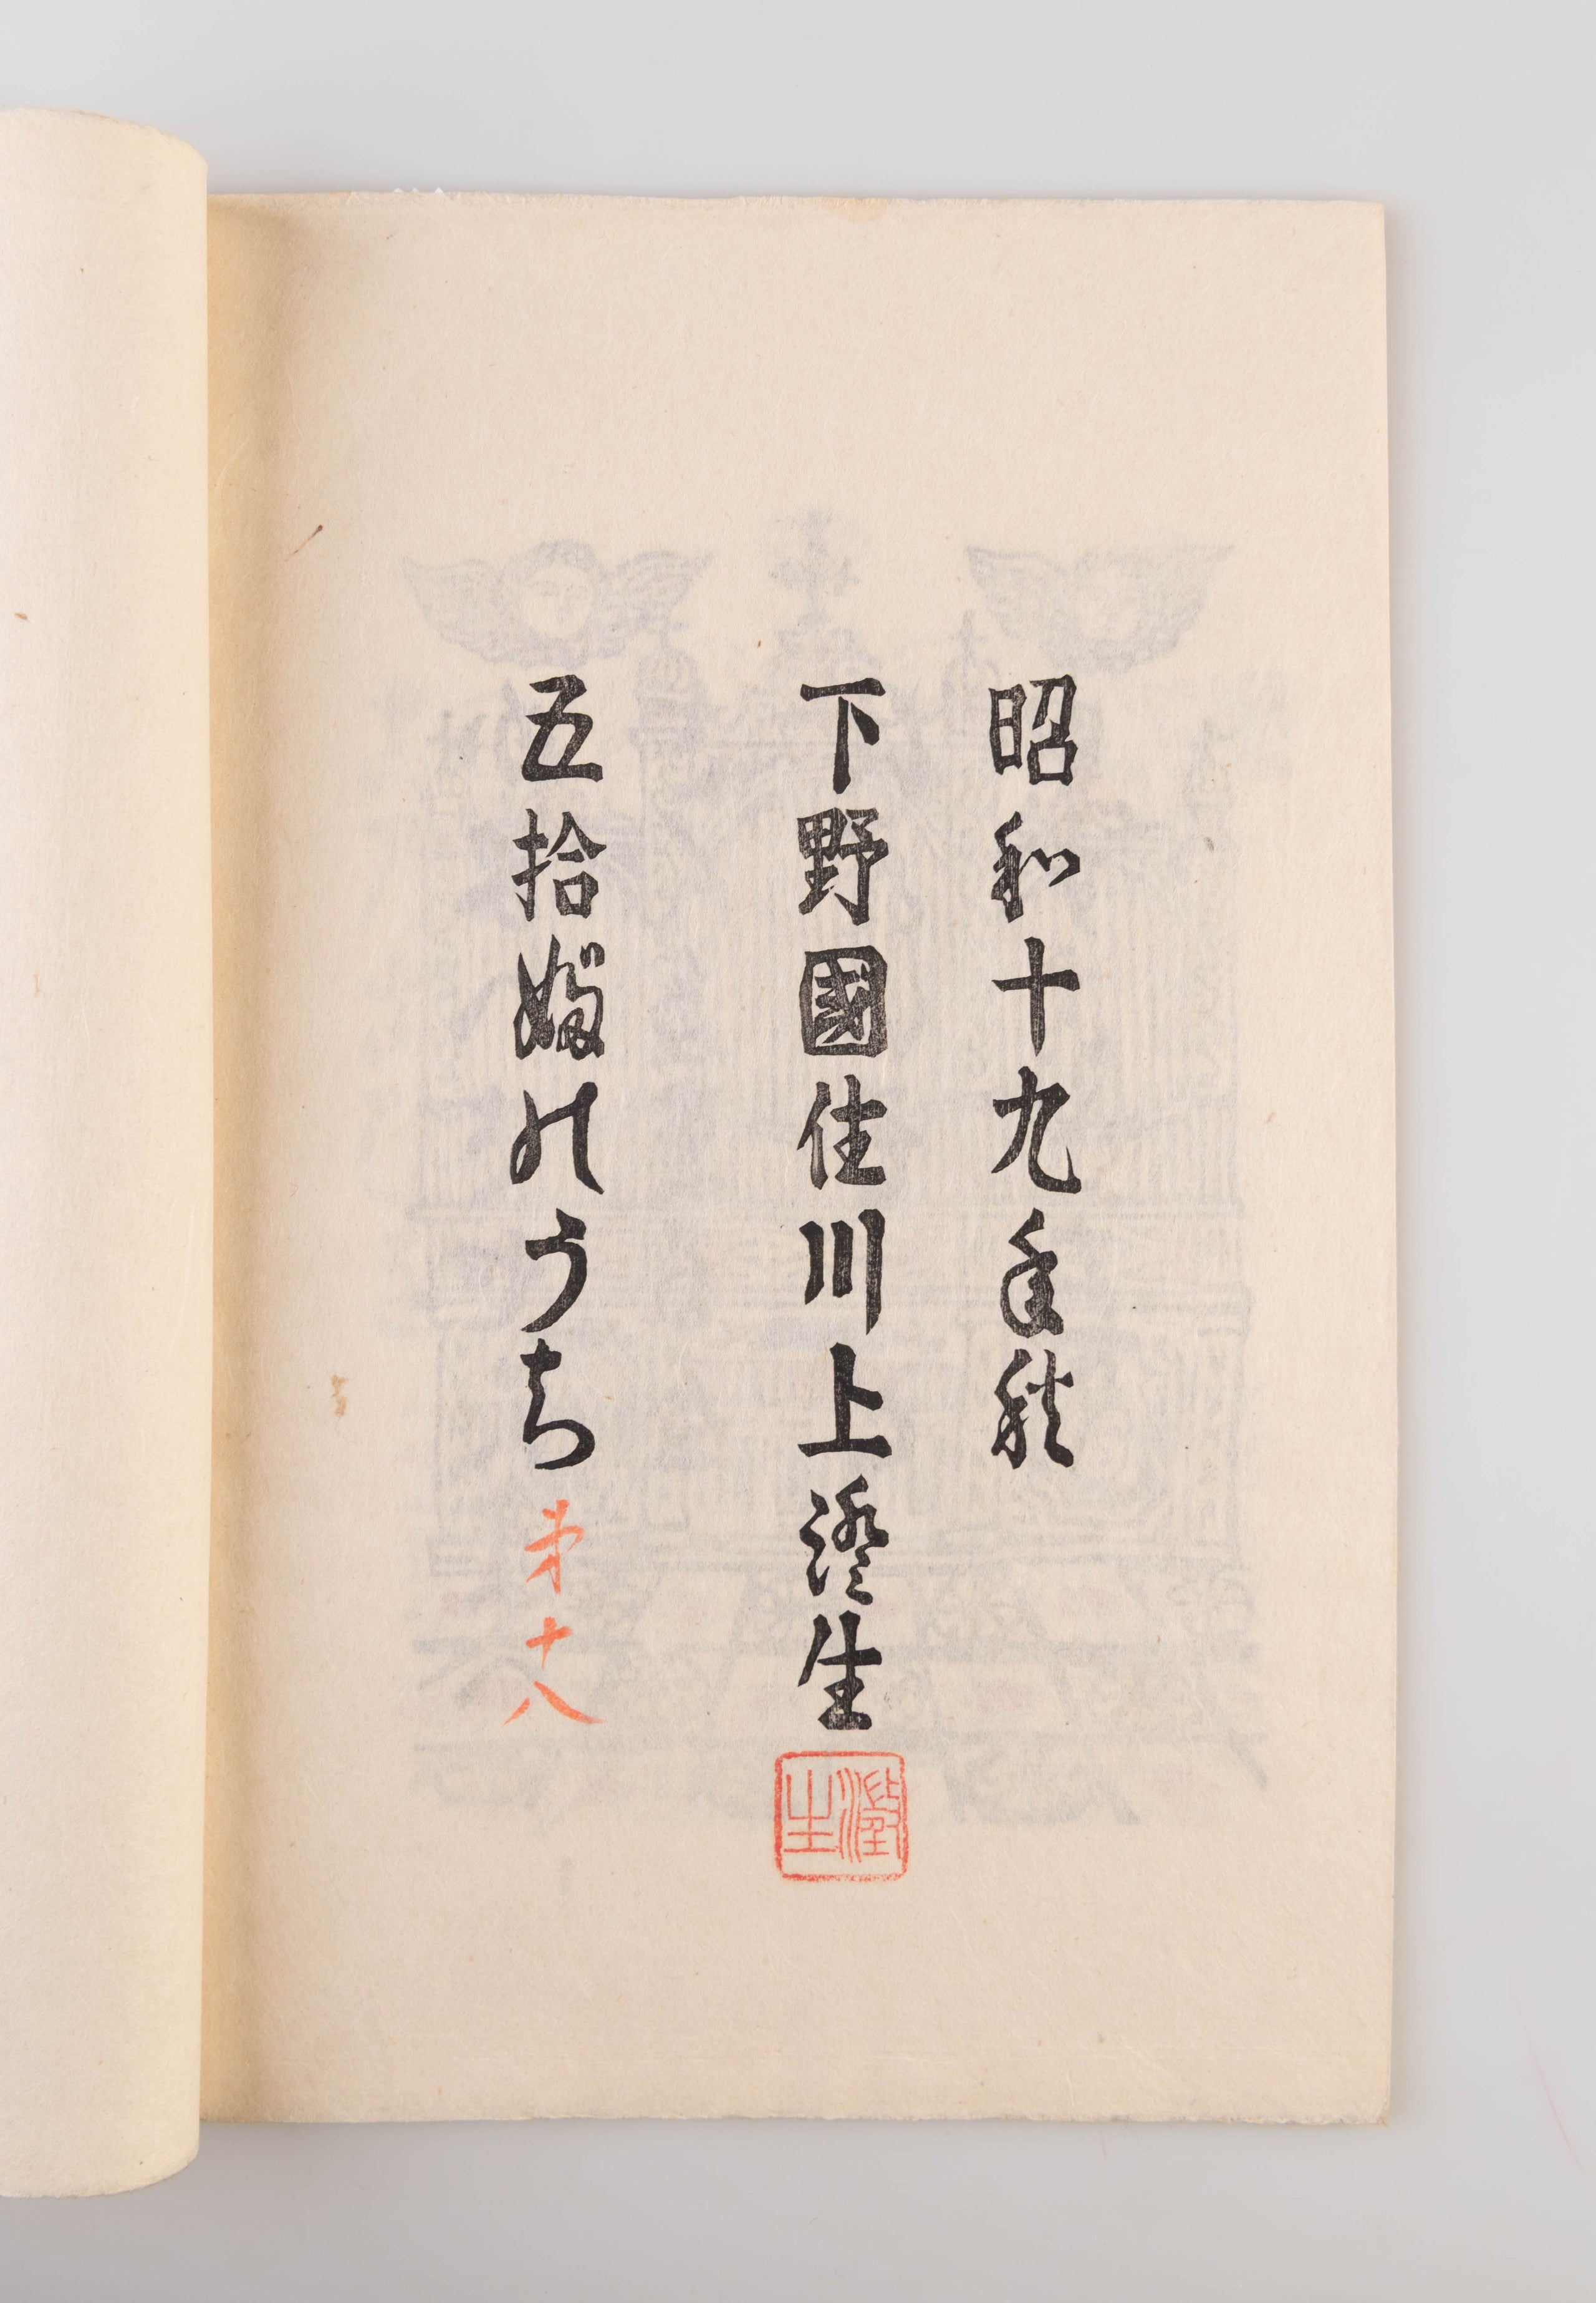 昭和十九年秋
下野國住川上澄生
澂生
五拾のうち 第十八